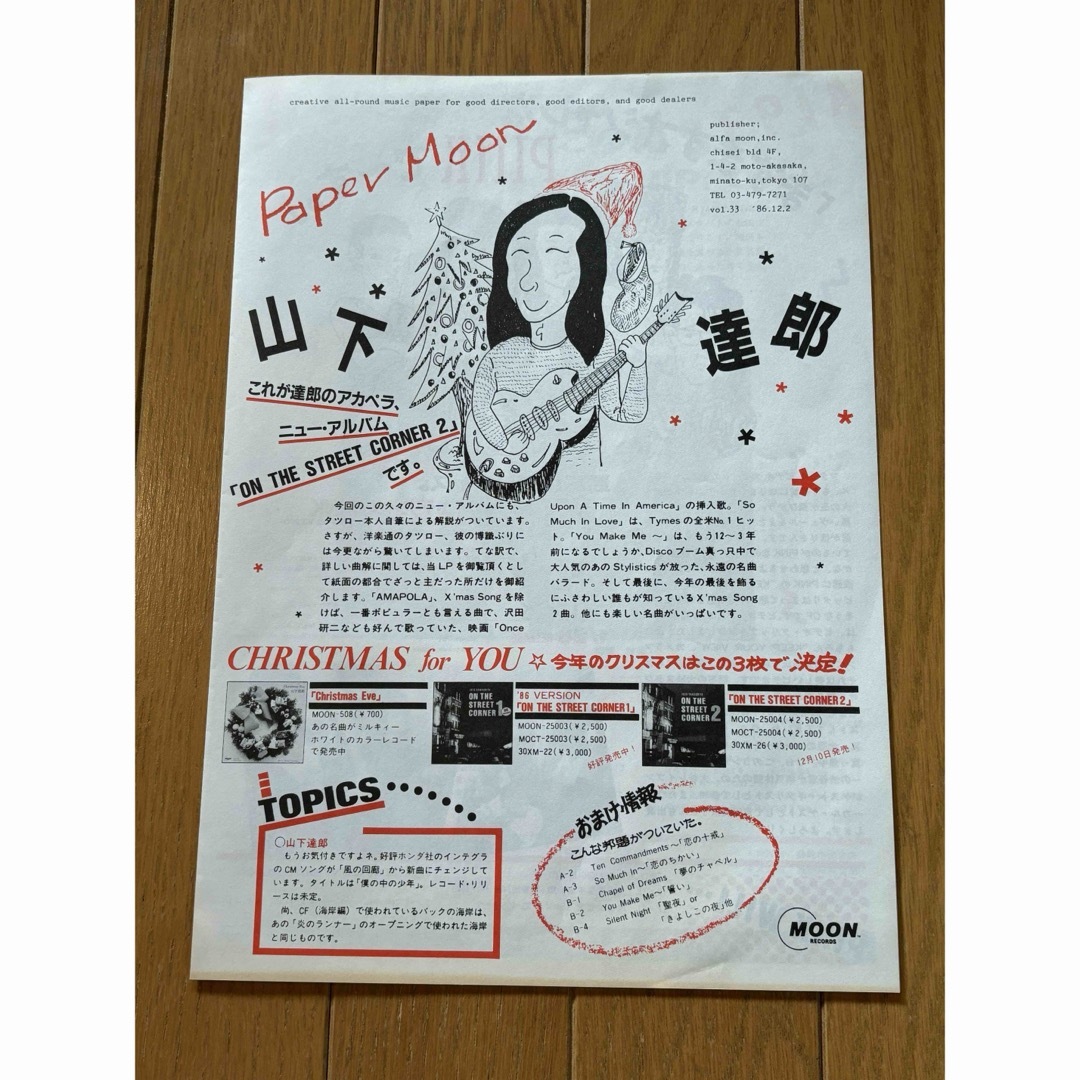 creative all-round music paper for good directors, good editors, and good dealers
Paper Moon
publisher;
alfa moon,inc.
chisei bld 4F,
1-4-2 moto-akasaka,
minato-ku,tokyo 107
TEL 03-479-7271
vol.33 '86.12.2
山下 達郎
これが達郎のアカペラ、
ニュー・アルバム
「ON THE STREET CORNER 2」
です。
今回のこの久々のニュー・アルバムにも、
タツロー本人自筆による解説がついています。
さすが、洋楽通のタツロー、彼の博識ぶりに
は今更ながら驚いてしまいます。てな訳で、
詳しい曲解に関しては、当LPを御覧頂くとし
て紙面の都合でざっと主だった所だけを御紹
介します。「AMAPOLA」、X'mas Songを除
けば、一番ポピュラーとも言える曲で、沢田
研二なども好んで歌っていた、映画「Once
Upon A Time In America」の挿入歌。「So
Much In Love」は、Tymesの全米No.1ヒッ
ト。「You Make Me 〜」は、もう12〜3年
前になるでしょうか、Discoブーム真っ只中で
大人気のあのStylisticsが放った、永遠の名曲
バラード。そして最後に、今年の最後を飾る
にふさわしい誰もが知っているX'mas Song
2曲。他にも楽しい名曲がいっぱいです。
CHRISTMAS for YOU ☆今年のクリスマスはこの3枚で決定!
「Christmas Eve」
MOON-508(￥700)
あの名曲がミルキィー
ホワイトのカラーレコード
で発売中
ON THE STREET CORNER 1
'86 VERSION
「ON THE STREET CORNER 1」
MOON-25003(￥2,500)
MOCT-25003(￥2,500)
30XM-22(￥3,000)
好評発売中!
ON THE STREET CORNER 2
「ON THE STREET CORNER 2」
MOON-25004(￥2,500)
MOCT-25004(￥2,500)
30XM-26(￥3,000)
12月10日発売!
TOPICS
○山下達郎
もうお気付きですよネ。好評ホンダ社のインテグラ
のCMソングが「風の回廊」から新曲にチェンジして
います。タイトルは「僕の中の少年」。レコード・リリ
ースは未定。
尚、CF(海岸編)で使われているバックの海岸は、
あの「炎のランナー」のオープニングで使われた海岸
と同じものです。
おまけ情報
こんな邦題がついていた。
A-2 Ten Commandments〜「恋の十戒」
A-3 So Much in〜「恋のちかい」
B-1 Chapel of Dreams 「夢のチャペル」
B-2 You Make Me〜「誓い」
B-4 Silent Night 「聖夜」or
「きよしこの夜」他
MOON
RECORDS